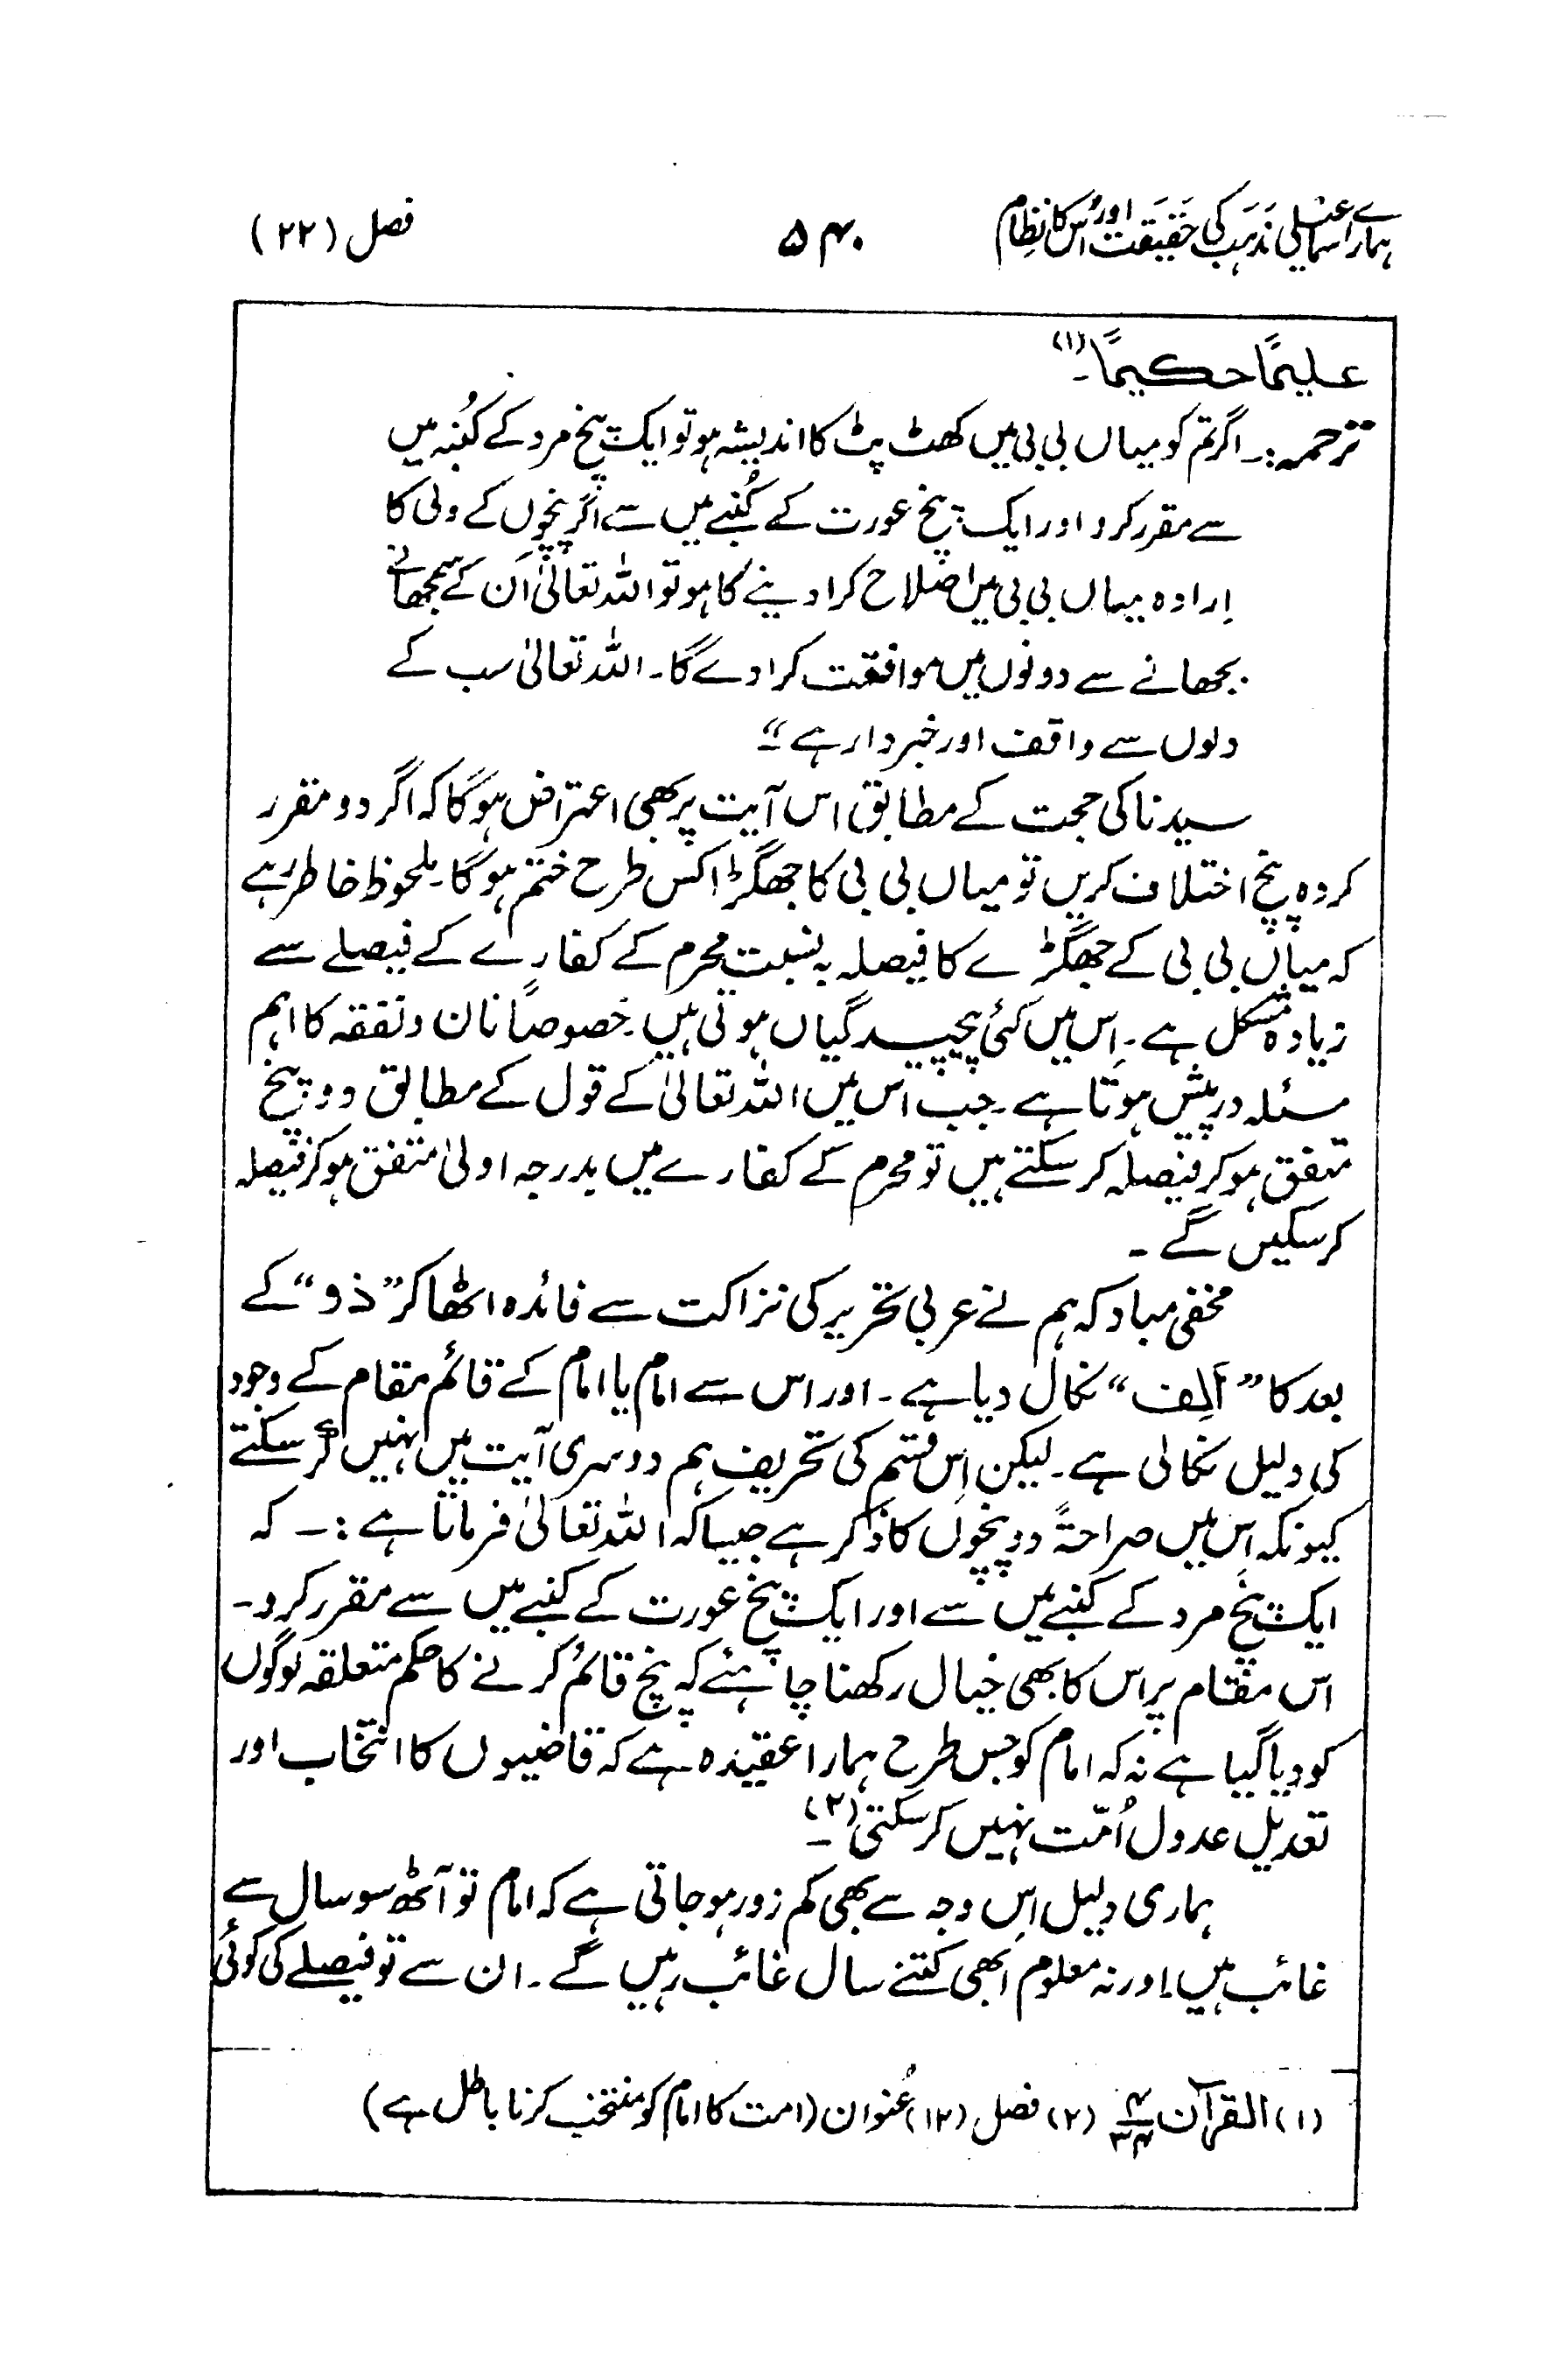 ہمارے اسماعیلی مذہب کی حقیقت اور اُس کا نظام
۵۴۰
فصل (۲۲)
علیمًا حکیمًا۔(۱)
ترجمہ:۔ اگر تم کو میاں بی بی میں کھٹ پٹ کا اندیشہ ہو تو ایک پنچ مرد کے کُنبہ میں
سے مقرر کرو اور ایک پنچ عورت کے کُنبے میں سے اگر پنچوں کے دلی کا
اِرادہ میاں بی بی میں اصلاح کرا دینے کا ہو تو اللہ تعالیٰ اُن کے سمجھانے
بجھانے سے دونوں میں موافقت کرا دے گا۔ اللہ تعالیٰ سب کے
دلوں سے واقف اور خبردار ہے“
سیدنا کی حجت کے مطابق اس آیت پر بھی اعتراض ہوگا کہ اگر دو مقرر
کردہ پنچ اختلاف کریں تو میاں بی بی کا جھگڑا کس طرح ختم ہوگا۔ ملحوظ خاطر رہے
کہ میاں بی بی کے جھگڑے کا فیصلہ بہ نسبت محرم کے کفارے کے فیصلے سے
زیادہ مشکل ہے۔ اِس میں کئی پیچیدگیاں ہوتی ہیں۔ خصوصاً نان و نفقہ کا اہم
مسئلہ درپیش ہوتا ہے۔ جب اس میں اللہ تعالیٰ کے قول کے مطابق دو پنچ
متفق ہوکر فیصلہ کرسکتے ہیں تو محرم کے کفارے میں بدرجہ اولیٰ متفق ہوکر فیصلہ
کرسکیں گے۔
مخفی مباد کہ ہم نے عربی تحریر کی نزاکت سے فائدہ اٹھا کر ”ذو“ کے
بعد کا ”اَلِف“ نکال دیا ہے۔ اور اس سے امام یا امام کے قائم مقام کے وجود
کی دلیل نکالی ہے۔ لیکن اِس قسم کی تحریف ہم دوسری آیت میں نہیں کرسکتے
کیونکہ اِس میں صراحۃً دو پنچوں کا ذکر ہے جیسا کہ اللہ تعالیٰ فرماتا ہے:۔ کہ
ایک پنچ مرد کے کنبے میں سے اور ایک پنچ عورت کے کنبے میں سے مقرر کرو۔
اس مقام پر اس کا بھی خیال رکھنا چاہئے کہ پنچ قائم کرنے کا حکم متعلقہ لوگوں
کو دیا گیا ہے نہ کہ امام کو جس طرح ہمارا عقیدہ ہے کہ قاضیوں کا انتخاب اور
تعدیل عدول اُمّت نہیں کرسکتی(۲)۔
ہماری دلیل اِس وجہ سے بھی کم زور ہو جاتی ہے کہ امام تو آٹھ سو سال سے
غائب ہیں اور نہ معلوم ابھی کتنے سال غائب رہیں گے۔ ان سے تو فیصلے کی کوئی
(۱) القرآن ۴/۳۴ (۲) فصل (۱۲) عُنوان (امت کا امام کو منتخب کرنا باطل ہے)